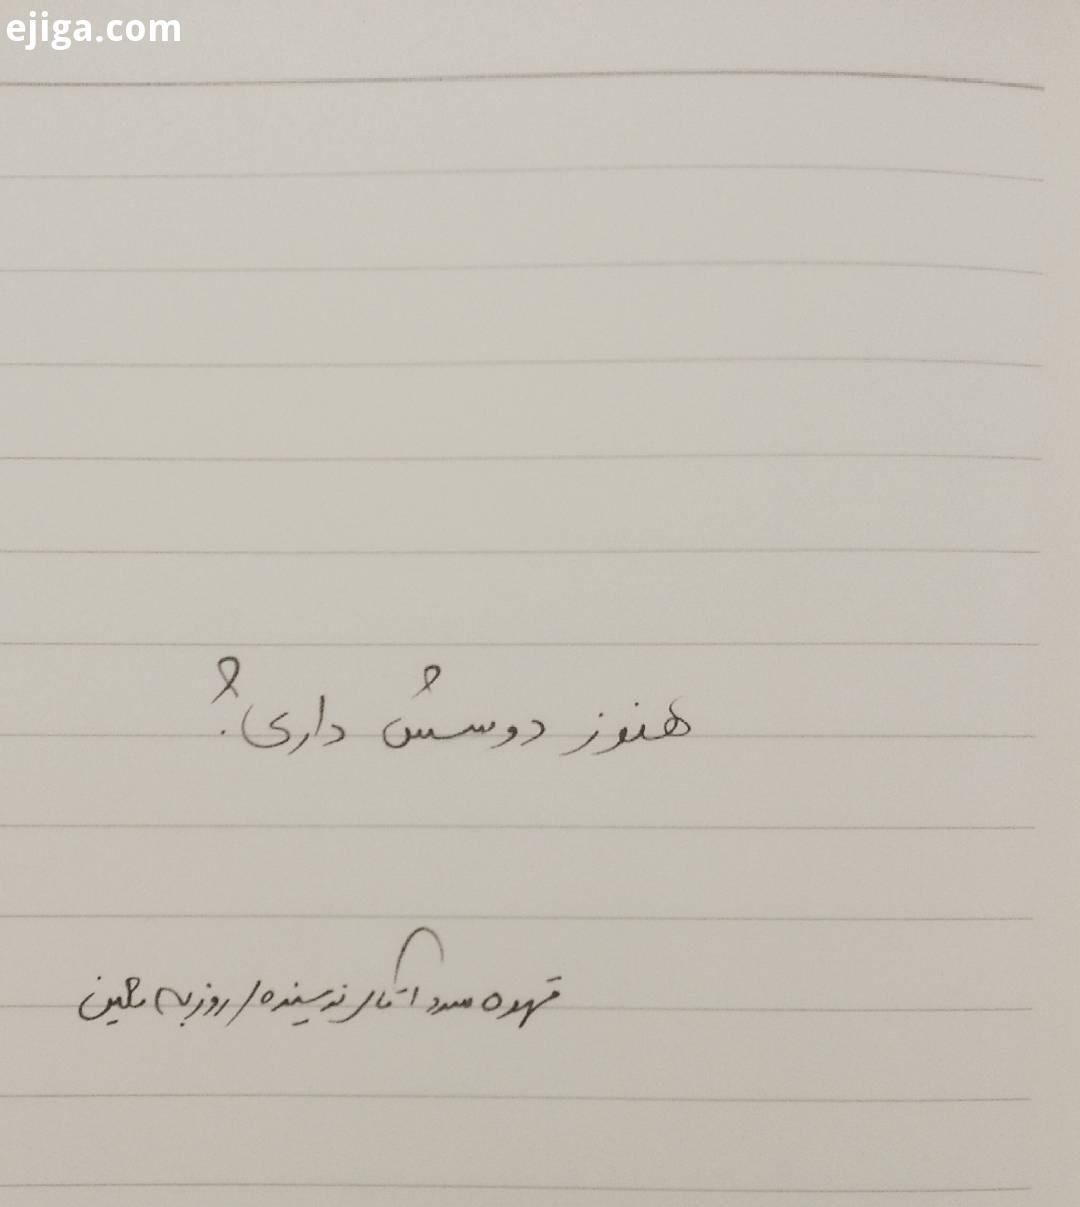 ejiga.com
هنوز دوسش داری؟
قهوه سرد آقای نویسنده / روزبه معین